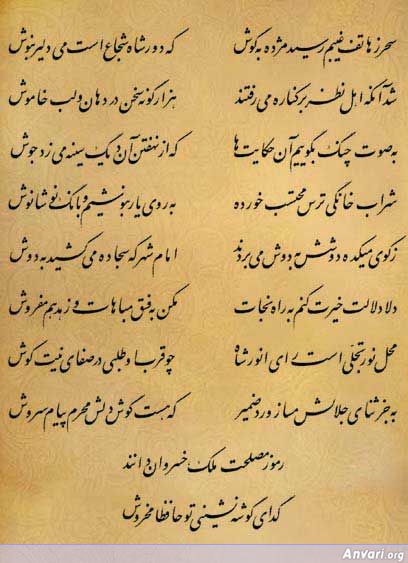 سحر ز هاتف غیبم رسید مژده به گوش که دور شاه شجاع است می دلیر بنوش
شد آنکه اهل نظر بر کناره می رفتند هزار گونه سخن در دهان و لب خاموش
به صوت چنگ بگوییم آن حکایت ها که از نهفتن آن دیگ سینه می زد جوش
شراب خانگی ترس محتسب خورده به روی یار بنوشیم و بانگ نوشانوش
ز کوی میکده دوشش به دوش می بردند امام شهر که سجاده می کشید به دوش
دلا دلالت خیرت کنم به راه نجات مکن به فسق مباهات و زهد هم مفروش
محل نور تجلی است رای انور شاه چو قرب او طلبی در صفای نیت کوش
به جز ثنای جلالش مساز ورد ضمیر که هست گوش دلش محرم پیام سروش
رموز مصلحت ملک خسروان دانند
گدای گوشه نشینی تو حافظا مخروش
Anvari.org